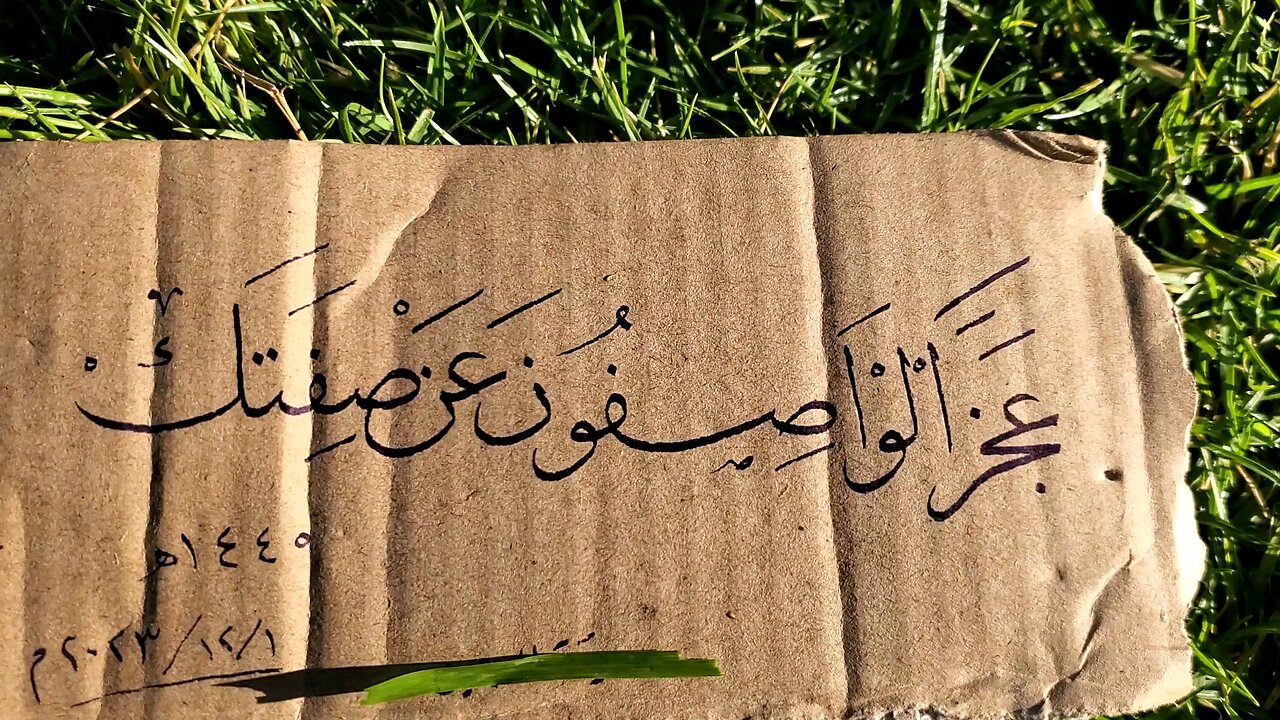 عَجَزَ الْوَاصِفُونَ عَنْ صِفَتِكَ
١٤٤٥هـ
٢٠٢٣/١٢/١م